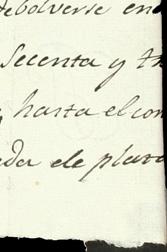 debolverse en
Secenta y tr
hasta el con
da de plata